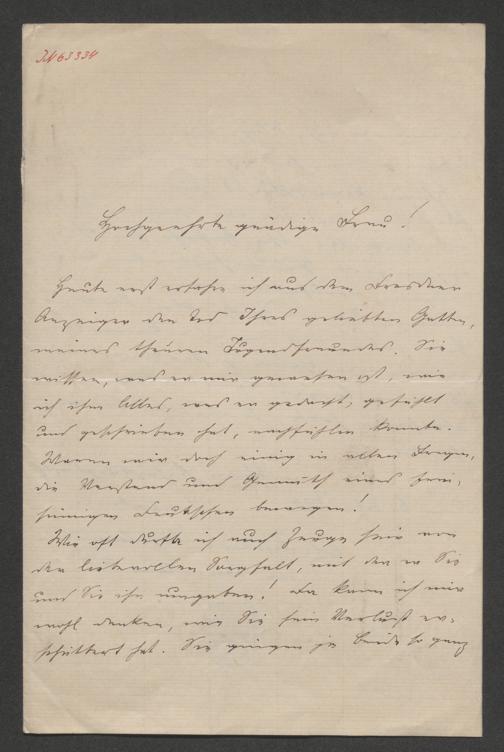 IN 63334
Hochgeehrte gnädige Frau!
Heute erst erfahre ich aus dem Dresdner
Anzeiger den Tod Ihres geliebten Gatten,
meines theuren Jugendfreundes. Sie
wissen, was er mir gewesen ist, wie
ich ihm Alles, was er gedacht, gefühlt
und geschrieben hat, nachfühlen konnte.
Waren wir doch einig in allen Fragen,
die Verstand und Gemüth eines frei,
sinnigen Deutschen bewegen!
Wie oft durfte ich auch Zeuge sein von
der liebevollen Sorgfalt, mit der er Sie
und Sie ihn umgaben! Da kann ich mir
wohl denken, wie Sie sein Verlust er-
schüttert hat. Sie gingen ja beide so ganz